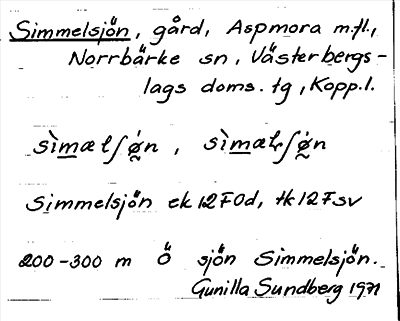 Simmelsjön, gård, Aspmora m.fl.,
Norrbärke sn, Västerbergs-
lags doms. tg, Kopp.l.
sìmælʃøn, sìmælʃøn
Simmelsjön ek 12F0d, tk 12F sv
200-300 m Ö sjön Simmelsjön.
Gunilla Sundberg 1971